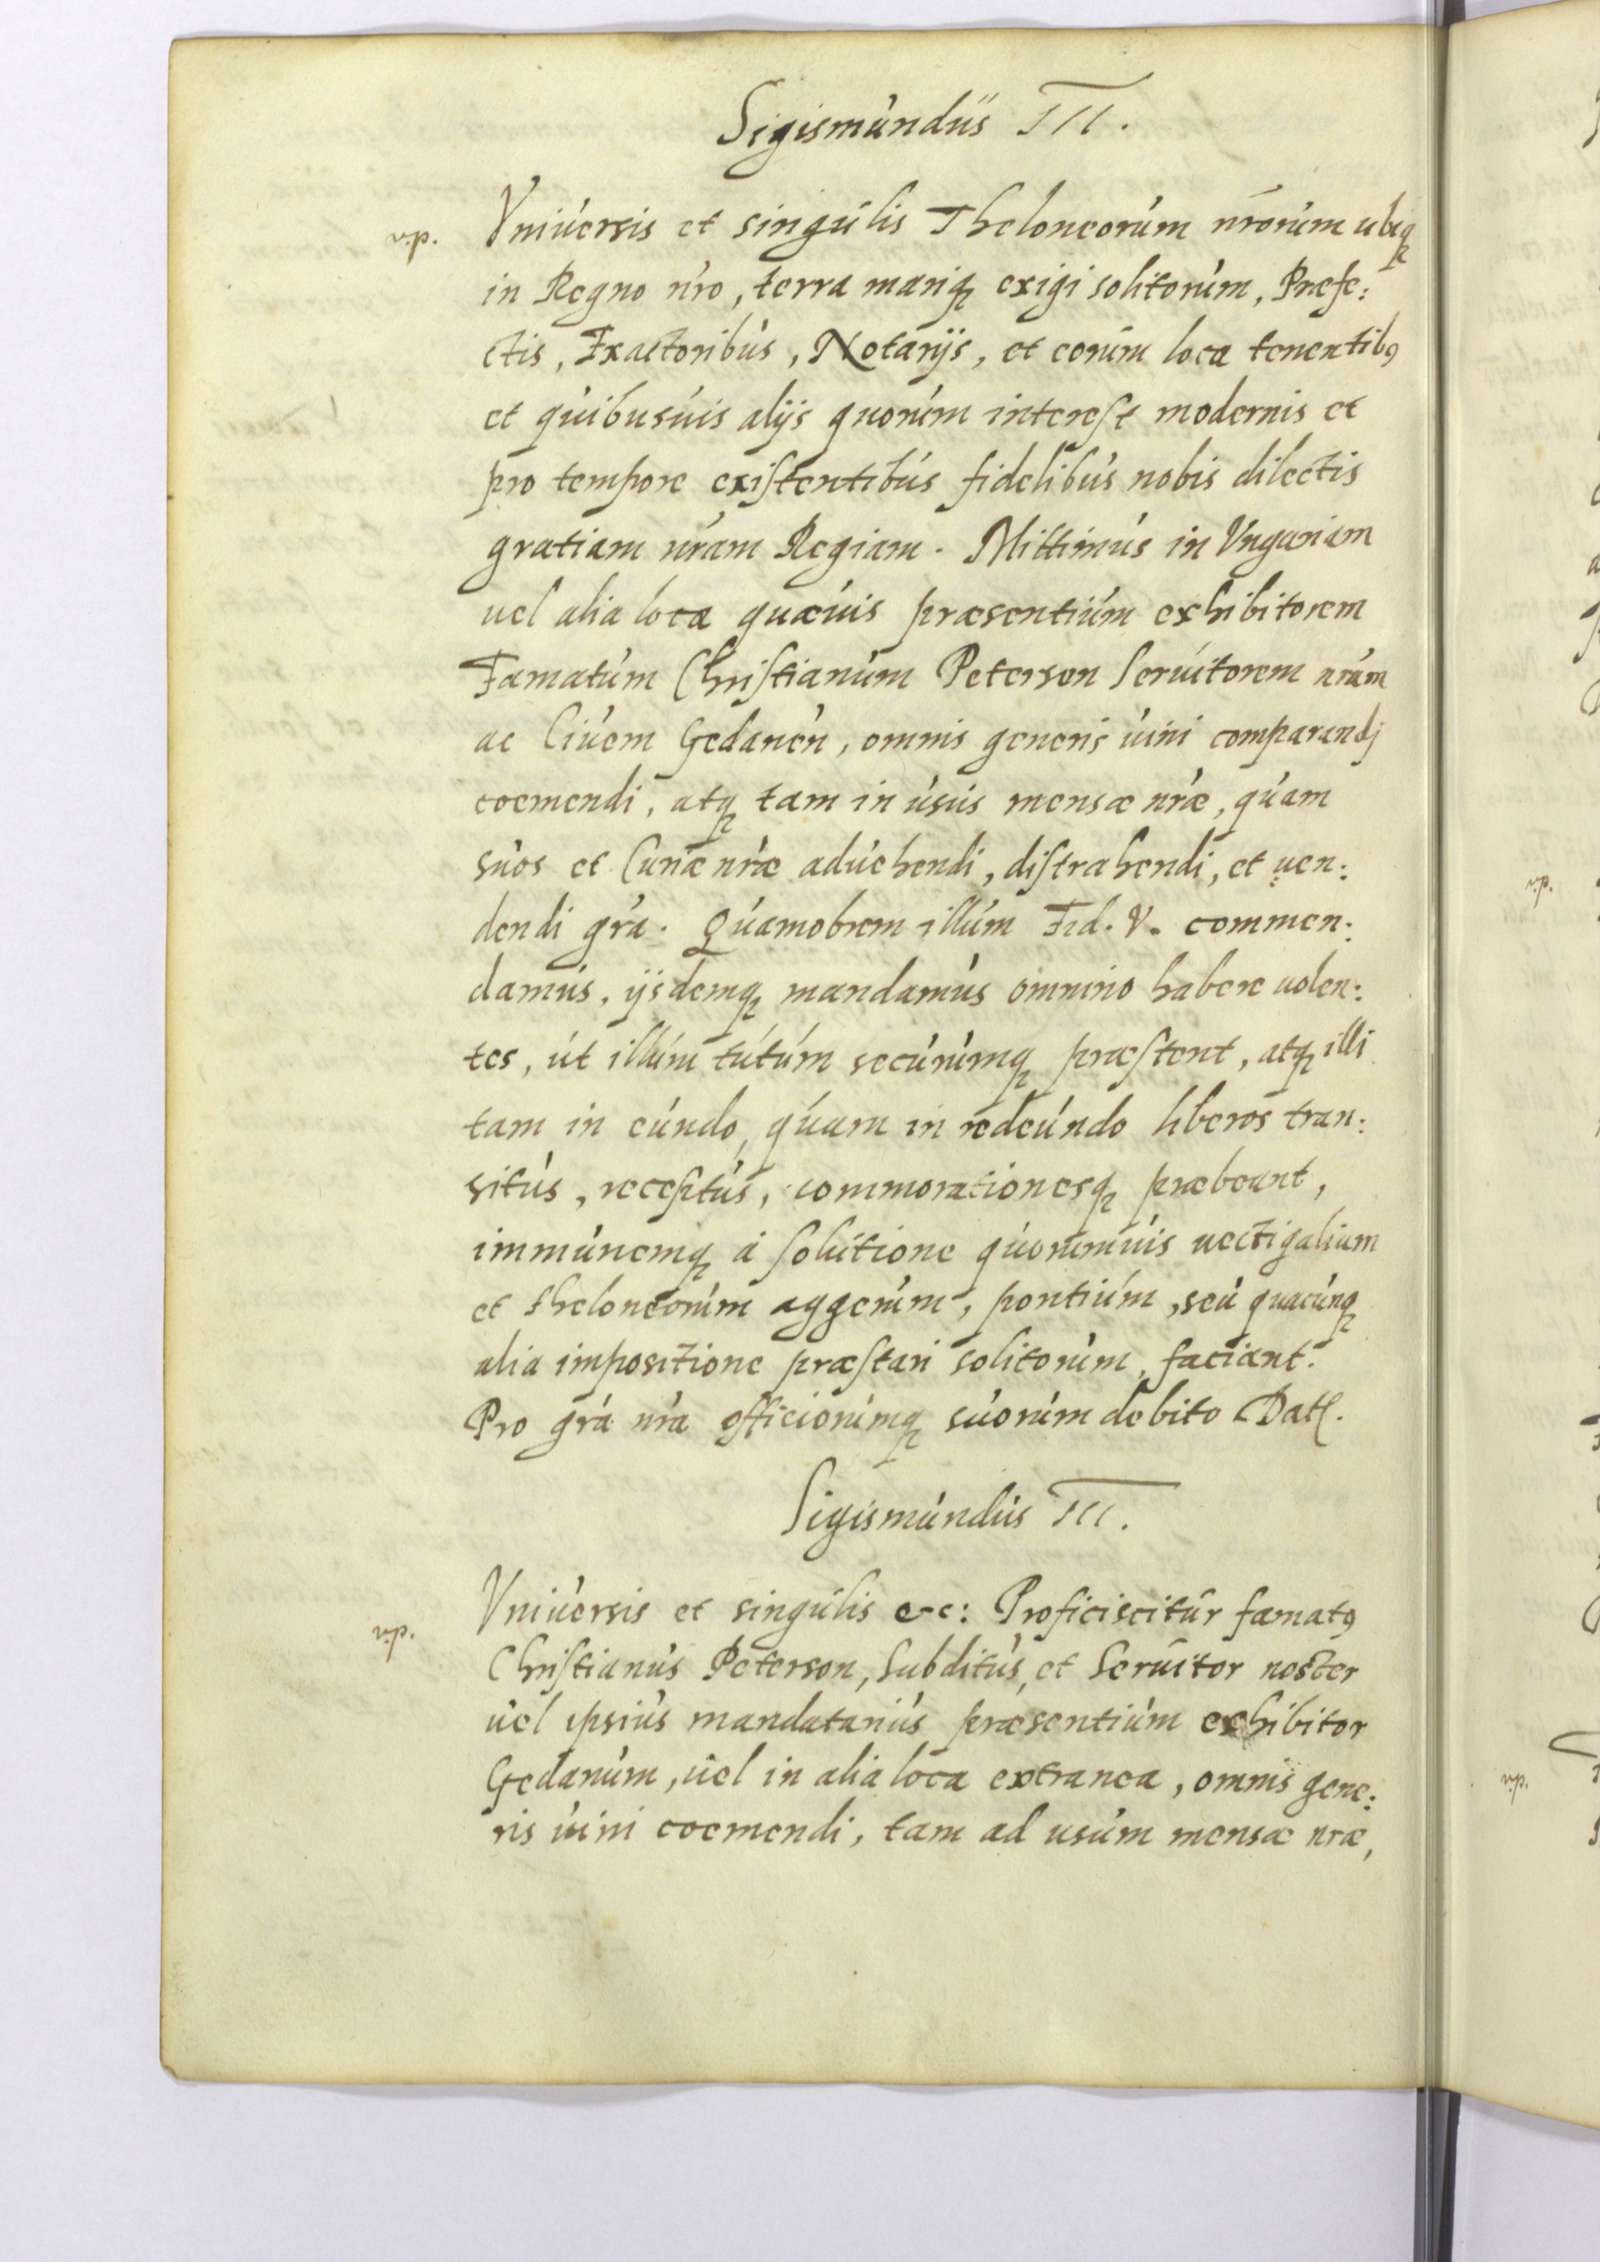 Sigismundus III.
Vniuersis et singulis Theloneorum nrorum ubiq
in Regno nro, terra mariq exigi solitorum, Præfe:
ctis, Exactoribus, Notarijs, et eorum loca tenentib9
et quibusuis alijs quorum interest modernis et
pro tempore existentibus fidelibus nobis dilectis
gratiam nram Regiam. Mittimus in Vngariam
uel alia loca quæuis præsentium exhibitorem
Famatum Christianum Peterson Seruitorem nrum
ac Ciuem Gedanen, omnis generis uini comparandj
coemendi, atq tam in usus mensæ nræ, quam
suos et Curiæ nræ aduehendi, distrahendi, et uen:
dendi gra. Quamobrem illum Fid. V. commen:
damus, ijsdemq mandamus omnino habere uolen:
tes, ut illum tutum securumq præstent, atq illi
tam in eundo, quam in redeundo liberos tran:
situs, receptus, commorationesq præbeant,
immunemq à solutione quorumuis uectigalium
et theloneorum aggerum, pontium, seu quacunq
alia impositione præstari solitorum, faciant.
Pro gra nra officiorumq suorum debito Dat.
Sigismundus III.
Vniuersis et singulis &c: Proficiscitur famat9
Christianus Peterson, Subditus, et Seruitor noster
uel ipsius mandatarius præsentium exhibitor
Gedanum, uel in alia loca extranea, omnis gene:
ris uini coemendi, tam ad usum mensæ nræ,